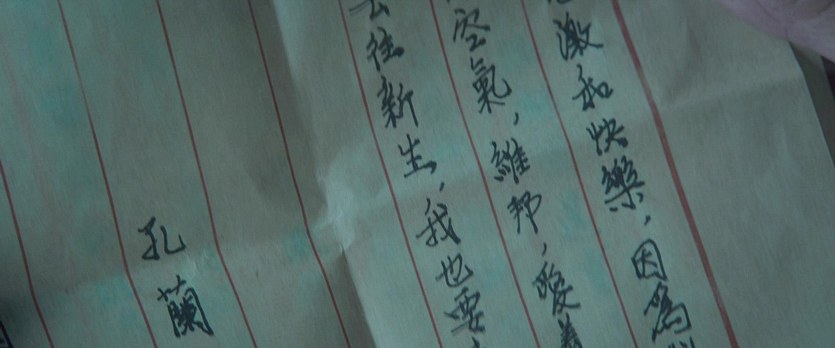 激和快樂，因為
空氣，維邦，愛
去往新生，我也要
孔蘭